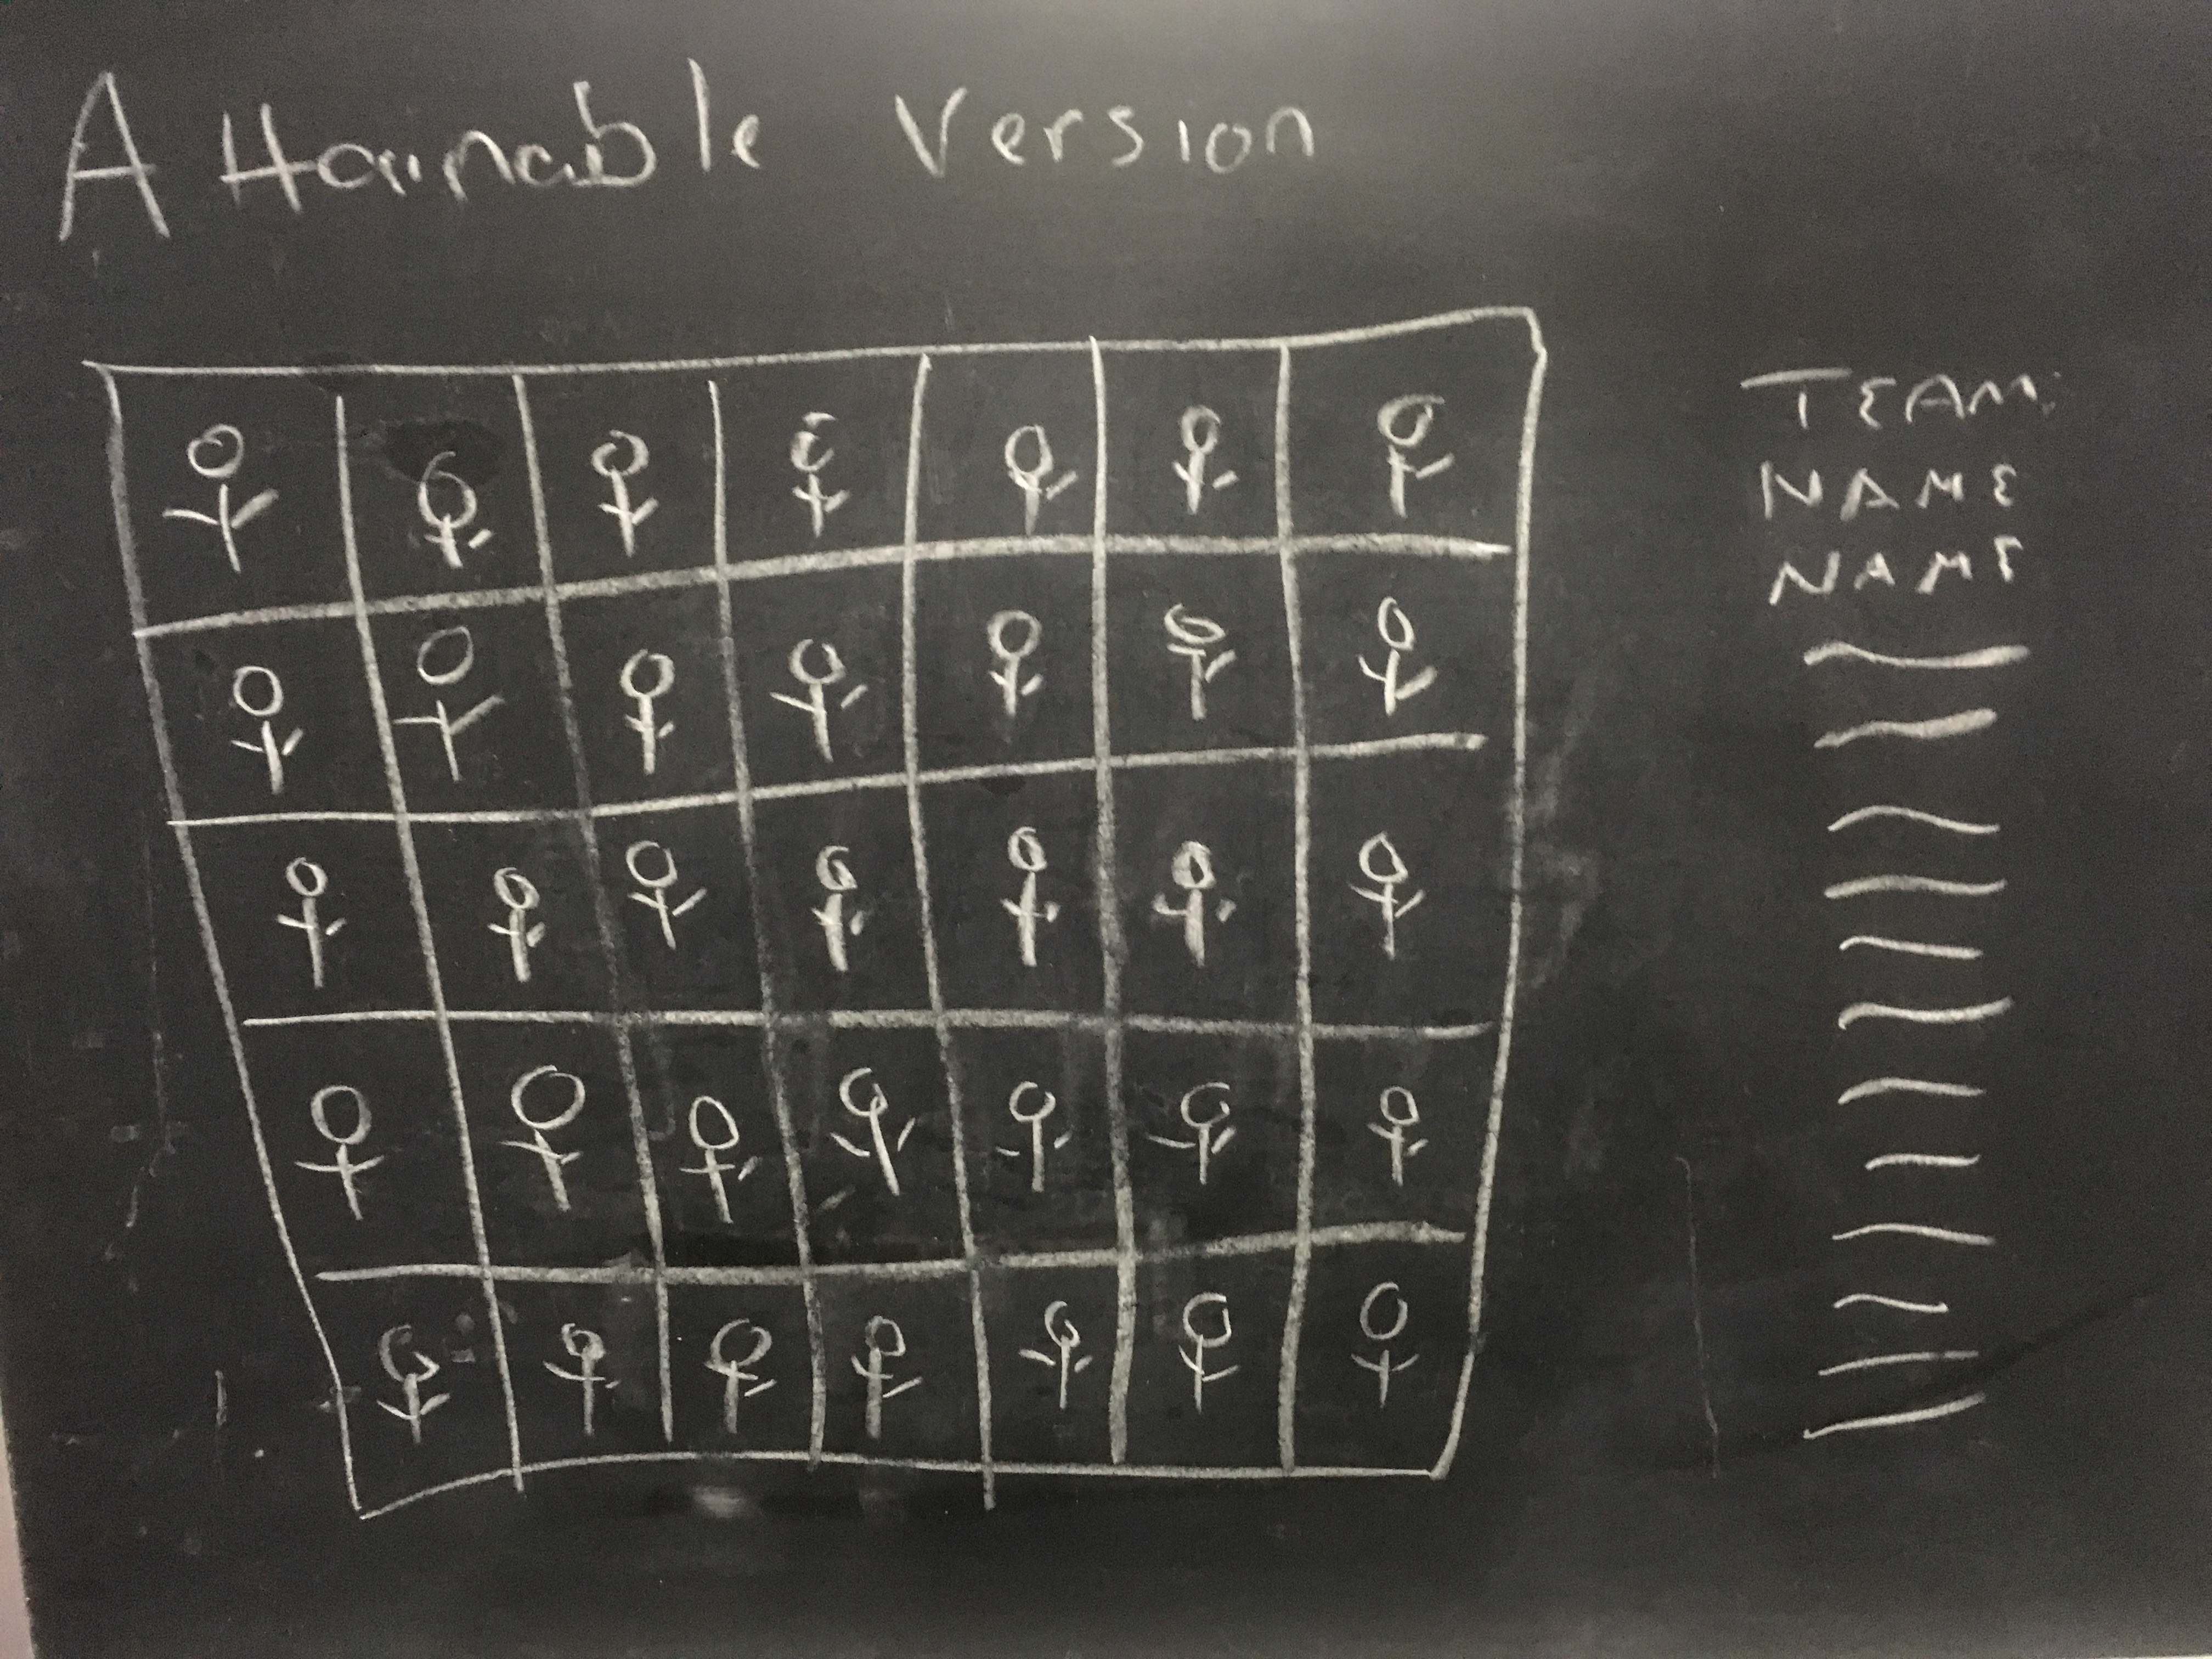 Attainable Version
TEAM:
NAME
NAME